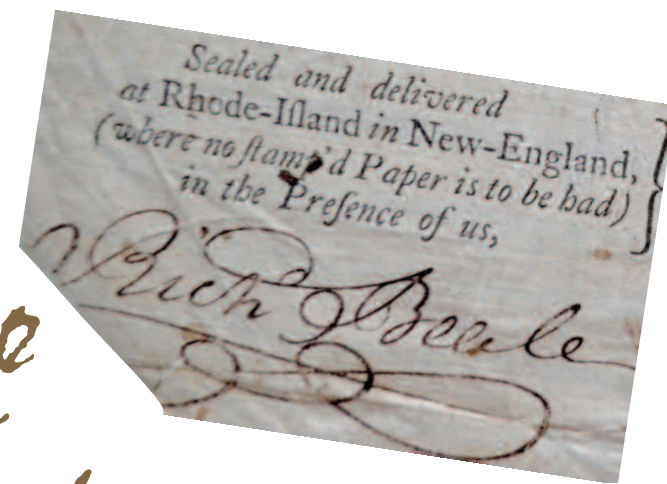 Sealed and delivered
at Rhode-Iſland in New-England,
(where no ſtamp'd Paper is to be had)
in the Preſence of us,
Rich^d Beale